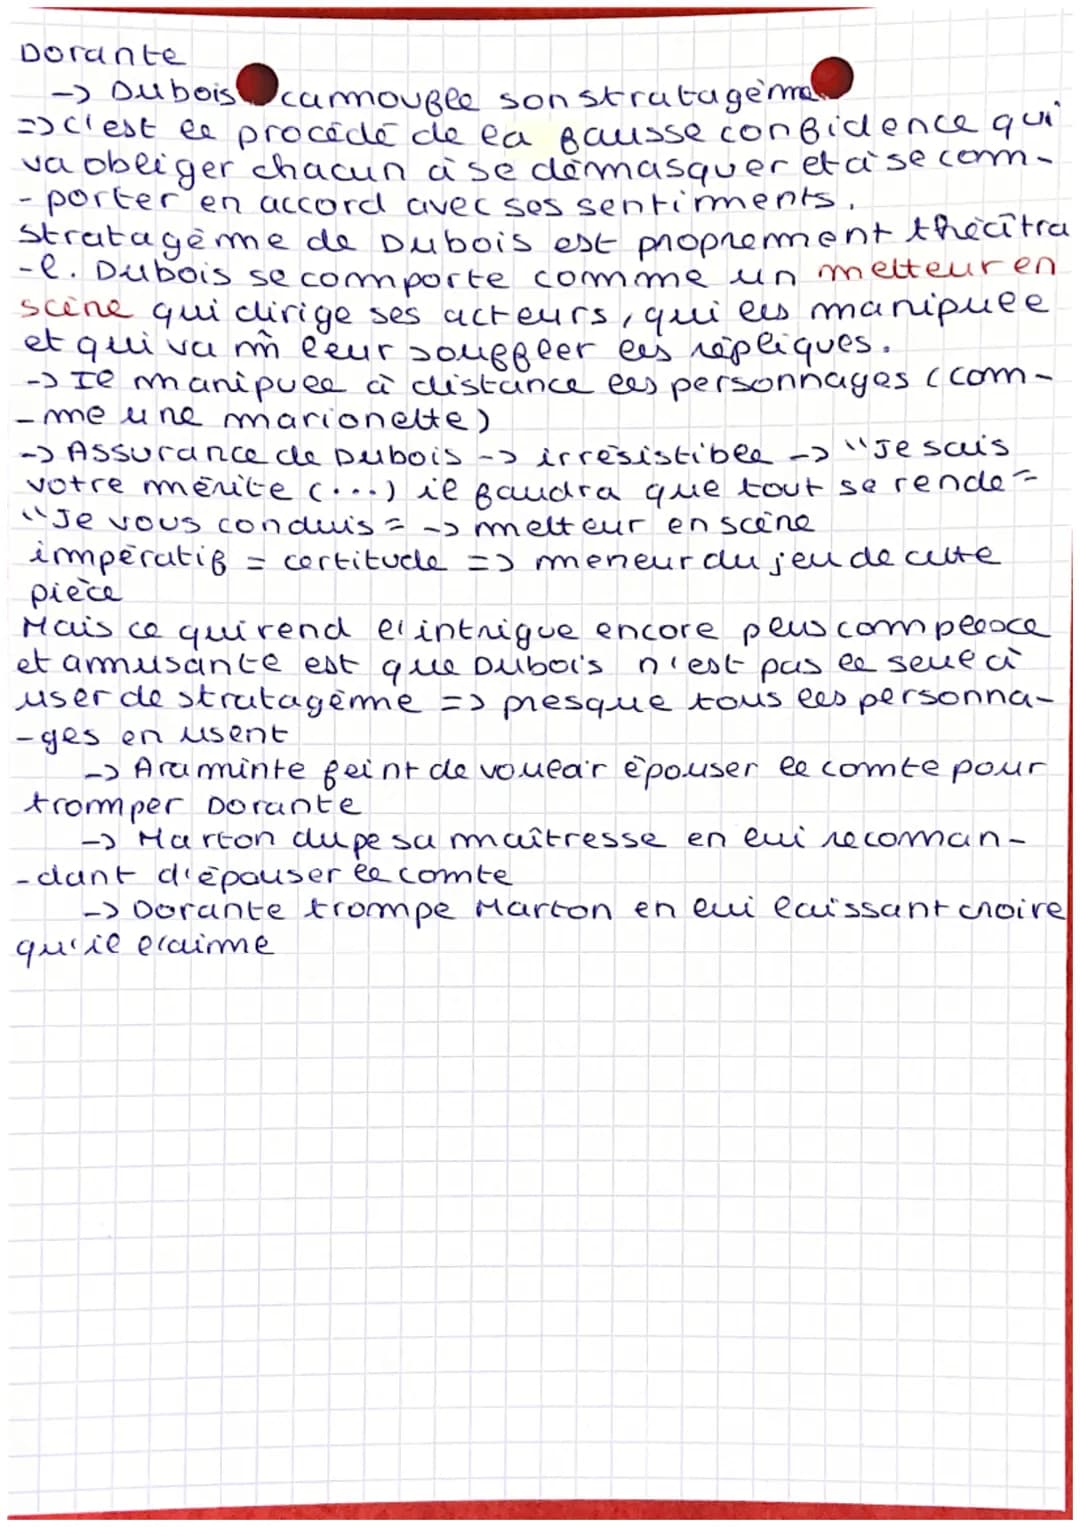 Dorante
-> Dubois camoufle son stratagème
=> c'est le procédé de la fausse confidence qui
va obliger chacun à se démasquer et à se com-
-porter en accord avec ses sentiments.
Stratagème de Dubois est proprement théâtra
-l. Dubois se comporte comme un metteur en
scène qui dirige ses acteurs, qui les manipule
et qui va m̂ leur souffler les répliques.
-> Il manipule à distance les personnages (com-
-me une marionette)
-> Assurance de Dubois -> irrésistible -> "Je sais
votre mérite (...) il faudra que tout se rende"
"Je vous conduis" -> metteur en scène
impératif = certitude => meneur du jeu de cette
pièce
Mais ce qui rend l'intrigue encore plus complexe
et amusante est que Dubois n'est pas le seul à
user de stratagème => presque tous les personna-
-ges en usent
-> Araminte feint de vouloir épouser le comte pour
tromper Dorante
-> Marton dupe sa maîtresse en lui recoman-
-dant d'épouser le comte
-> Dorante trompe Marton en lui laissant croire
qu'il l'aime